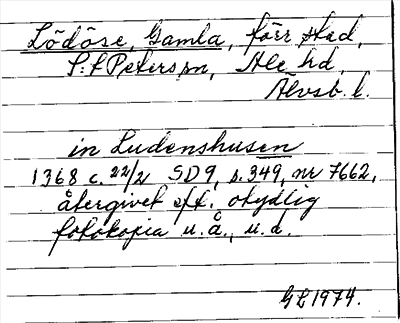 Lödöse, Gamla, förr stad,
S:t Peters sn, Ale hd,
Älvsb. l.
in Ludenshusen
1368 c. 22/2 SD9, s. 349, nr 7662,
återgivet eft. otydlig
fotokopia u. å., u. d.
GL 1974.